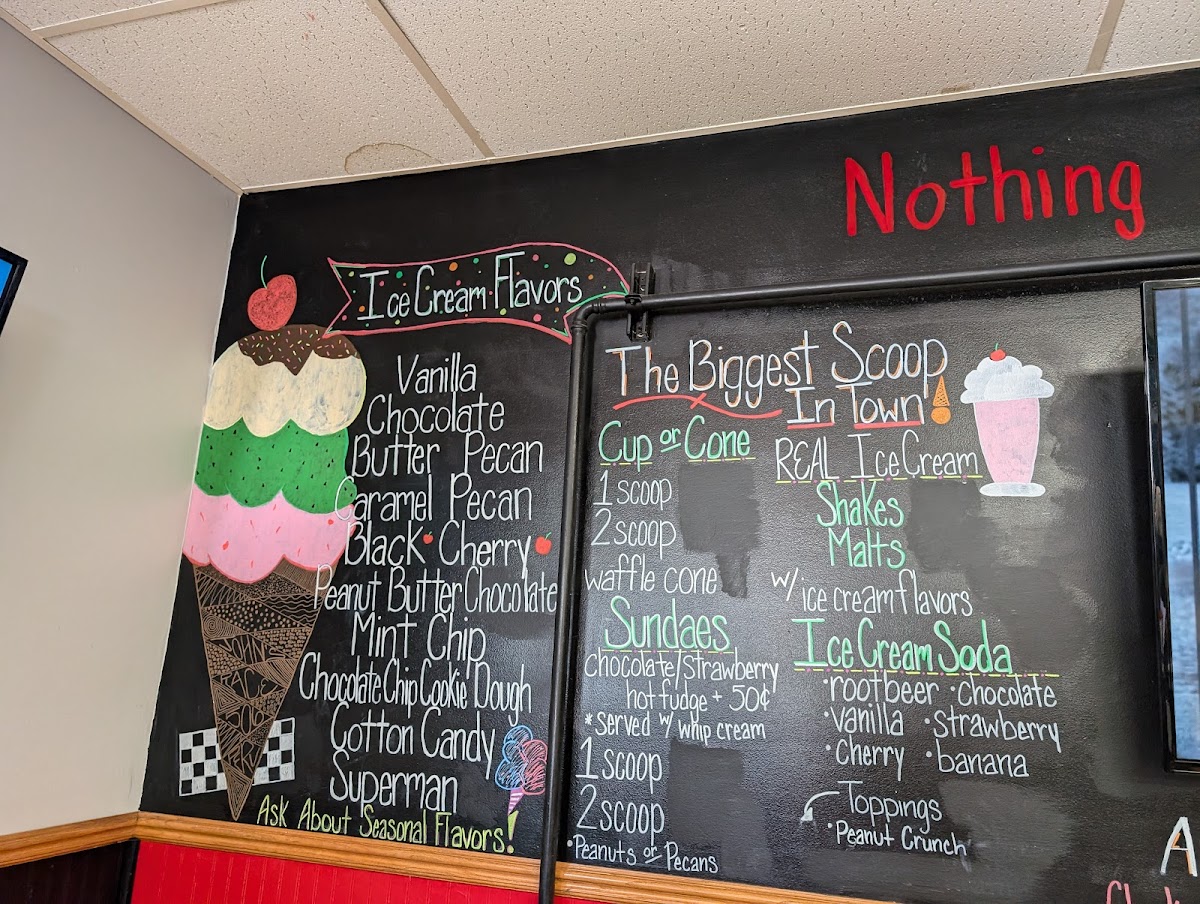 Nothing
Ice Cream Flavors
Vanilla
Chocolate
Butter Pecan
Caramel Pecan
Black Cherry
Peanut Butter Chocolate
Mint Chip
Chocolate Chip Cookie Dough
Cotton Candy
Superman
Ask About Seasonal Flavors!
The Biggest Scoop
In Town
Cup or Cone
1 scoop
2 scoop
waffle cone
Sundaes
chocolate/strawberry
hot fudge + 50¢
*served w/ whip cream
1 scoop
2 scoop
•Peanuts or Pecans
REAL Ice Cream
Shakes
Malts
w/ ice cream flavors
Ice Cream Soda
•rootbeer •chocolate
•vanilla •strawberry
•cherry •banana
Toppings
•Peanut Crunch